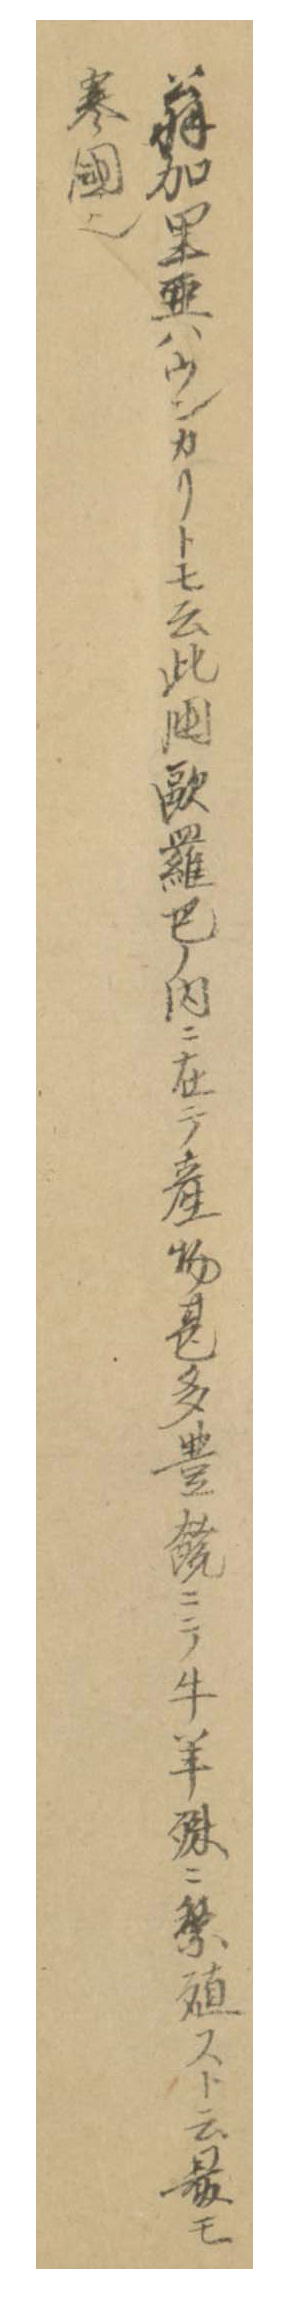 翁加里亜ハウンカリトモ云此国歐羅巴ノ内ニ在テ産物甚多豊饒ニテ牛羊殊ニ繁殖スト云最モ
寒國也